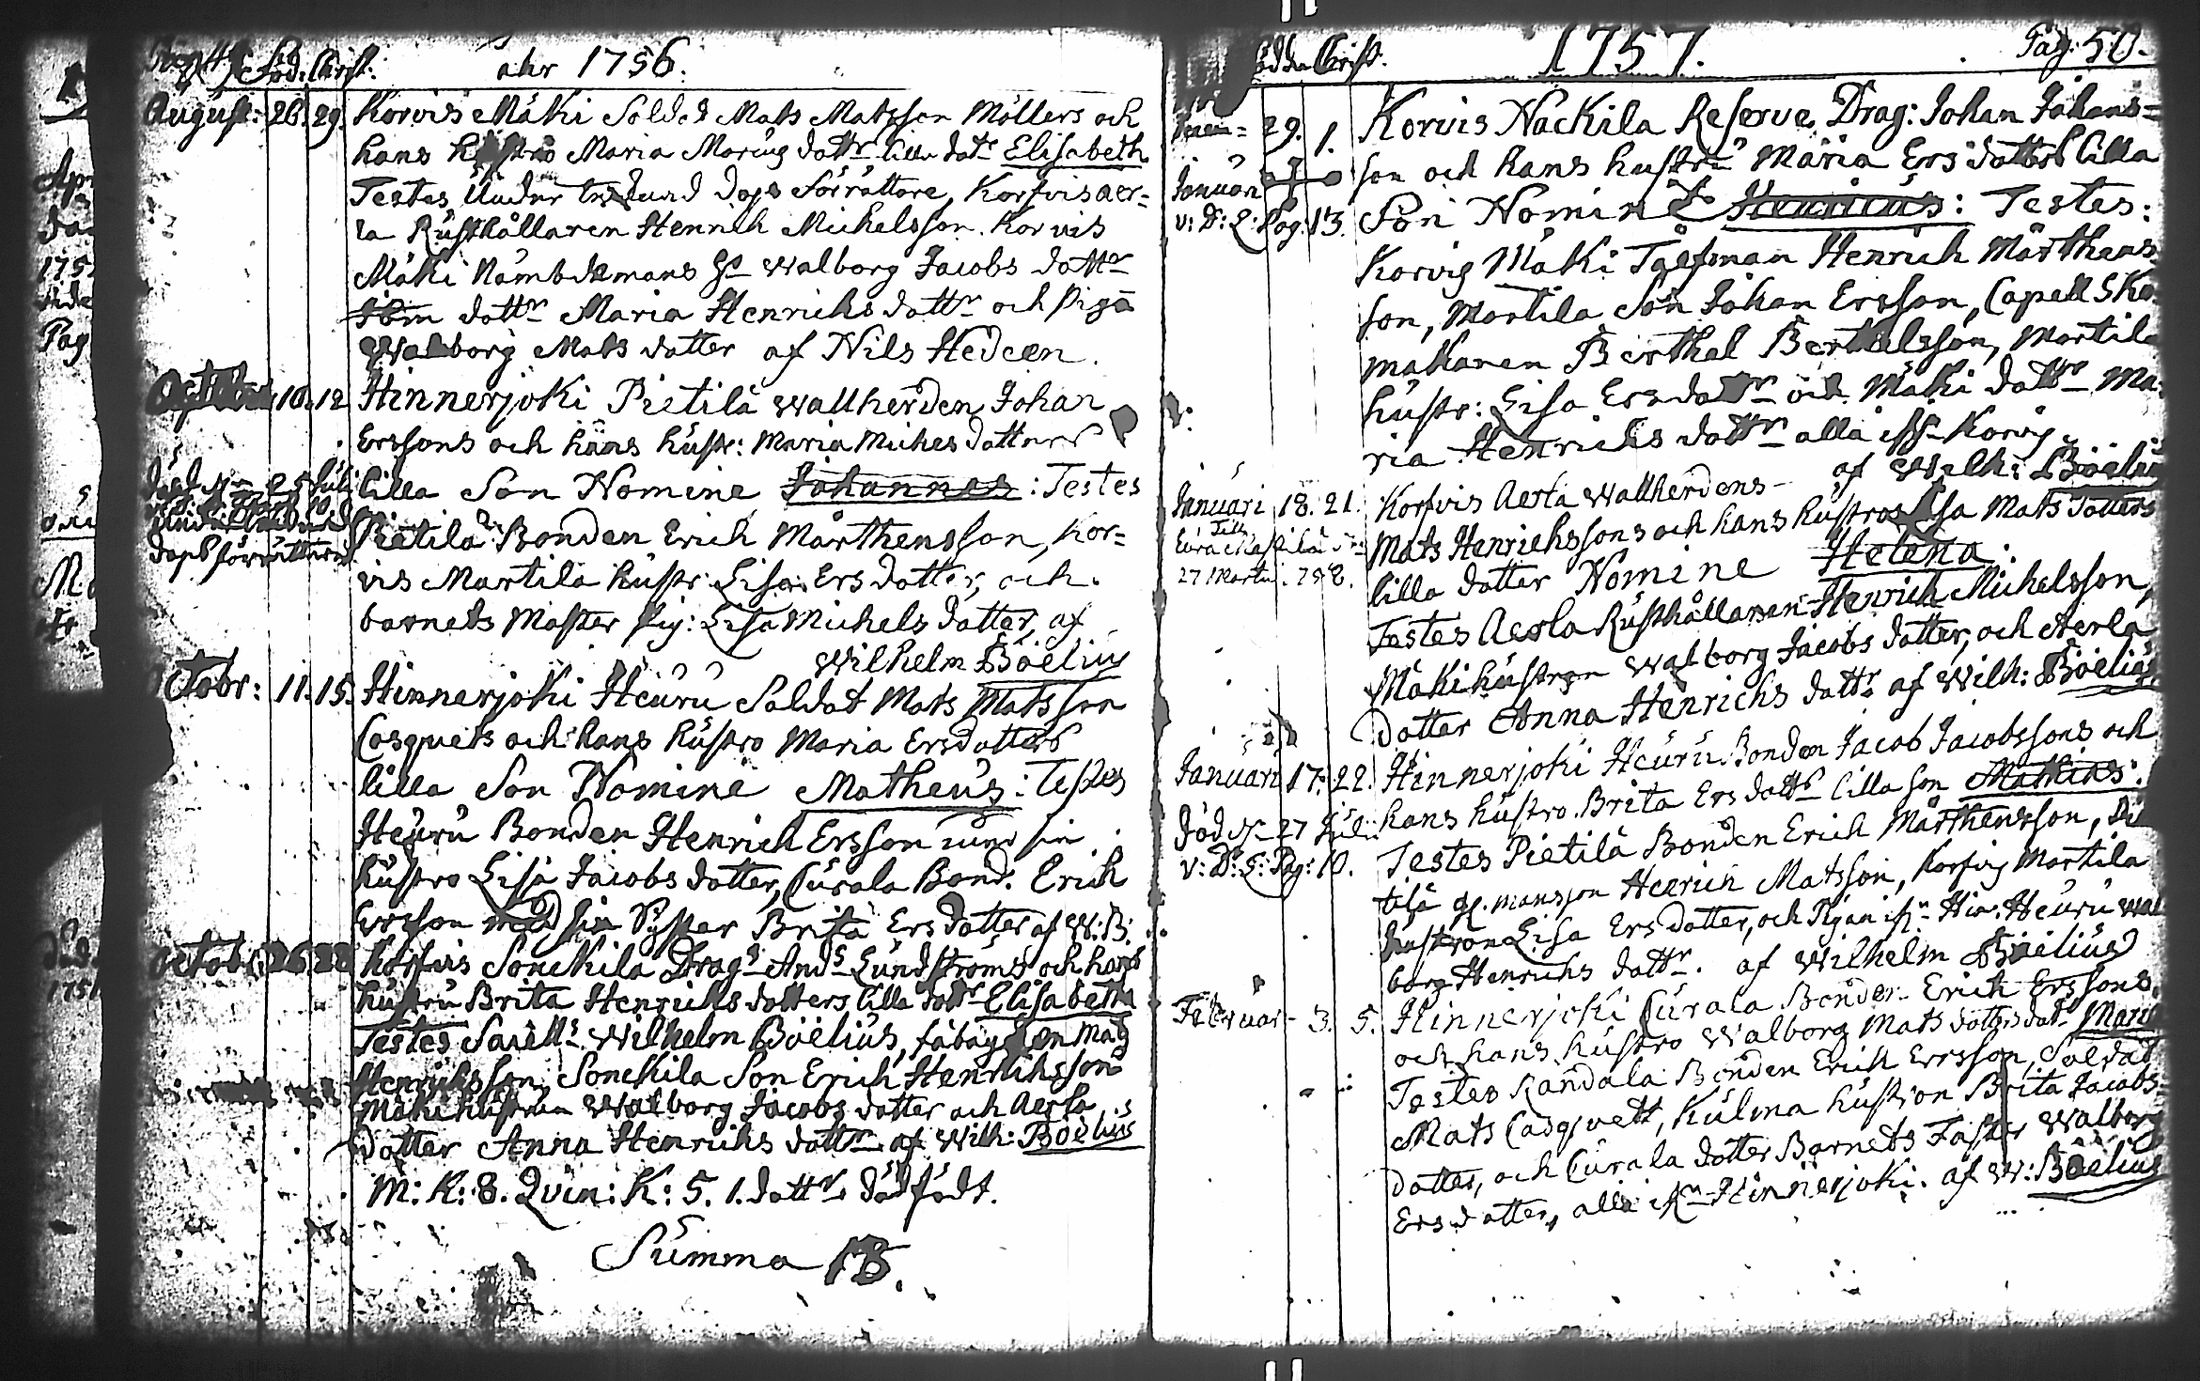 Föd: Christ: åhr 1756.
August: 26. 29. Korvis Mäki Soldat Mats Matsson Möllers och
hans hustro Maria Marcus dottr lilla dotr Elisabeth
Testes Under dops förrättare, Korfvis Aer-
la Rusthållaren Henrich Michelsson. Korvis
Mäki Nämbdemans Walborg Jacobs dottr
dottr Maria Henrichs dottr och piga
Walborg Mats dotter af Nils Hedeen.
October 10. 12 Hinnerjoki Pietilä wallherden Johan
Erssons och hans hustr: Maria Michels dotters
lilla Son Nomine Johannes: Testes
död 25 Juli
dops förrättare
Pietilä Bonden Erich Mårthensson, Kor-
vis Martila hustr: Lisa Ers dotter, och
barnets Moster pig: Lisa Michels dotter, af
Wilhelm Boëlius
Octobr: 11. 15. Hinnerjoki Heuru Soldat Mats Matsson
Casquets och hans hustro Maria Ersdotters
lilla Son Nomine Matheus: Testes
Heuru Bonden Henrich Ersson sin
hustro Lisa Jacobs dotter, Curala Bond. Erich
Ersson med sin Syster Brita Ers dotter af W: B:
Octob: 26 28 Korfvis Sonckila Drag: And: Lundströms och hans
hustru Brita Henrichs dotters lilla dottr Elisabetha
Testes Wilhelm Boëlius,
Henrichsson, Sonckila Son Erich Henrichsson
Mäki hustrun Walborg Jacobs dotter och Aerla
dotter Anna Henrichs dottr af Wilh: Boëlius
M: K: 8. Qvin: K: 5. 1. dottr dödfödt.
Summa
födda Christ. 1757. Pag: 50.
29. 1. Korvis Nackila Reserve Drag: Johan Johans=
son och hans hustru Maria Ers dotters lilla
Januari
v: D: L: Pag: 13. Son Nomine Henricus: Testes:
Korvis Mäki Tålfman Henrich Mårthens
son, Martila Son Johan Ersson, Capell Sko
makaren Berthel Berthelsson, Martila
hustr: Lisa Ers dottr och Mäki dottr Ma-
ria Henrichs dottr alla ifr Korvis
af Wilh: Boëlius
Januari 18. 21. Korfvis Aerla wallherdens
Mats Henrichssons och hans hustros Lisa Mats dotters
Till
27 Martii
lilla dotter Nomine Helena:
Testes Aerla Rusthållaren Henrich Michelsson,
Mäki hustron Walborg Jacobs dotter, och Aerla
dotter Anna Henrichs dottr af Wilh: Boëlius
Januari 17. 22. Hinnerjoki Heuru Bonden Jacob Jacobssons och
hans hustro Brita Ers dottr lilla son Mathias:
död 27 Juli
v: D: L: Pag: 10.
Testes Pietilä Bonden Erich Mårthensson, Pie
tilä Henrich Matsson, Korfvis Martila
hustron Lisa Ers dotter, och Pigan ifr Hin: Heuru Wal
borg Henrichs dottr. af Wilhelm Boëlius
Februar 3. 5. Hinnerjoki Curala Bonden Erich Erssons
och hans hustro Walborg Mats dotters dotr Maria
Testes Randala Bonden Erich Ersson, Soldat
Mats Casqvett, Kulma hustron Brita Jacobs-
dotter, och Curala dotter Barnets Faster Walborg
Ers dotter, alla ifrn Hinnerjoki. af W: Boëlius